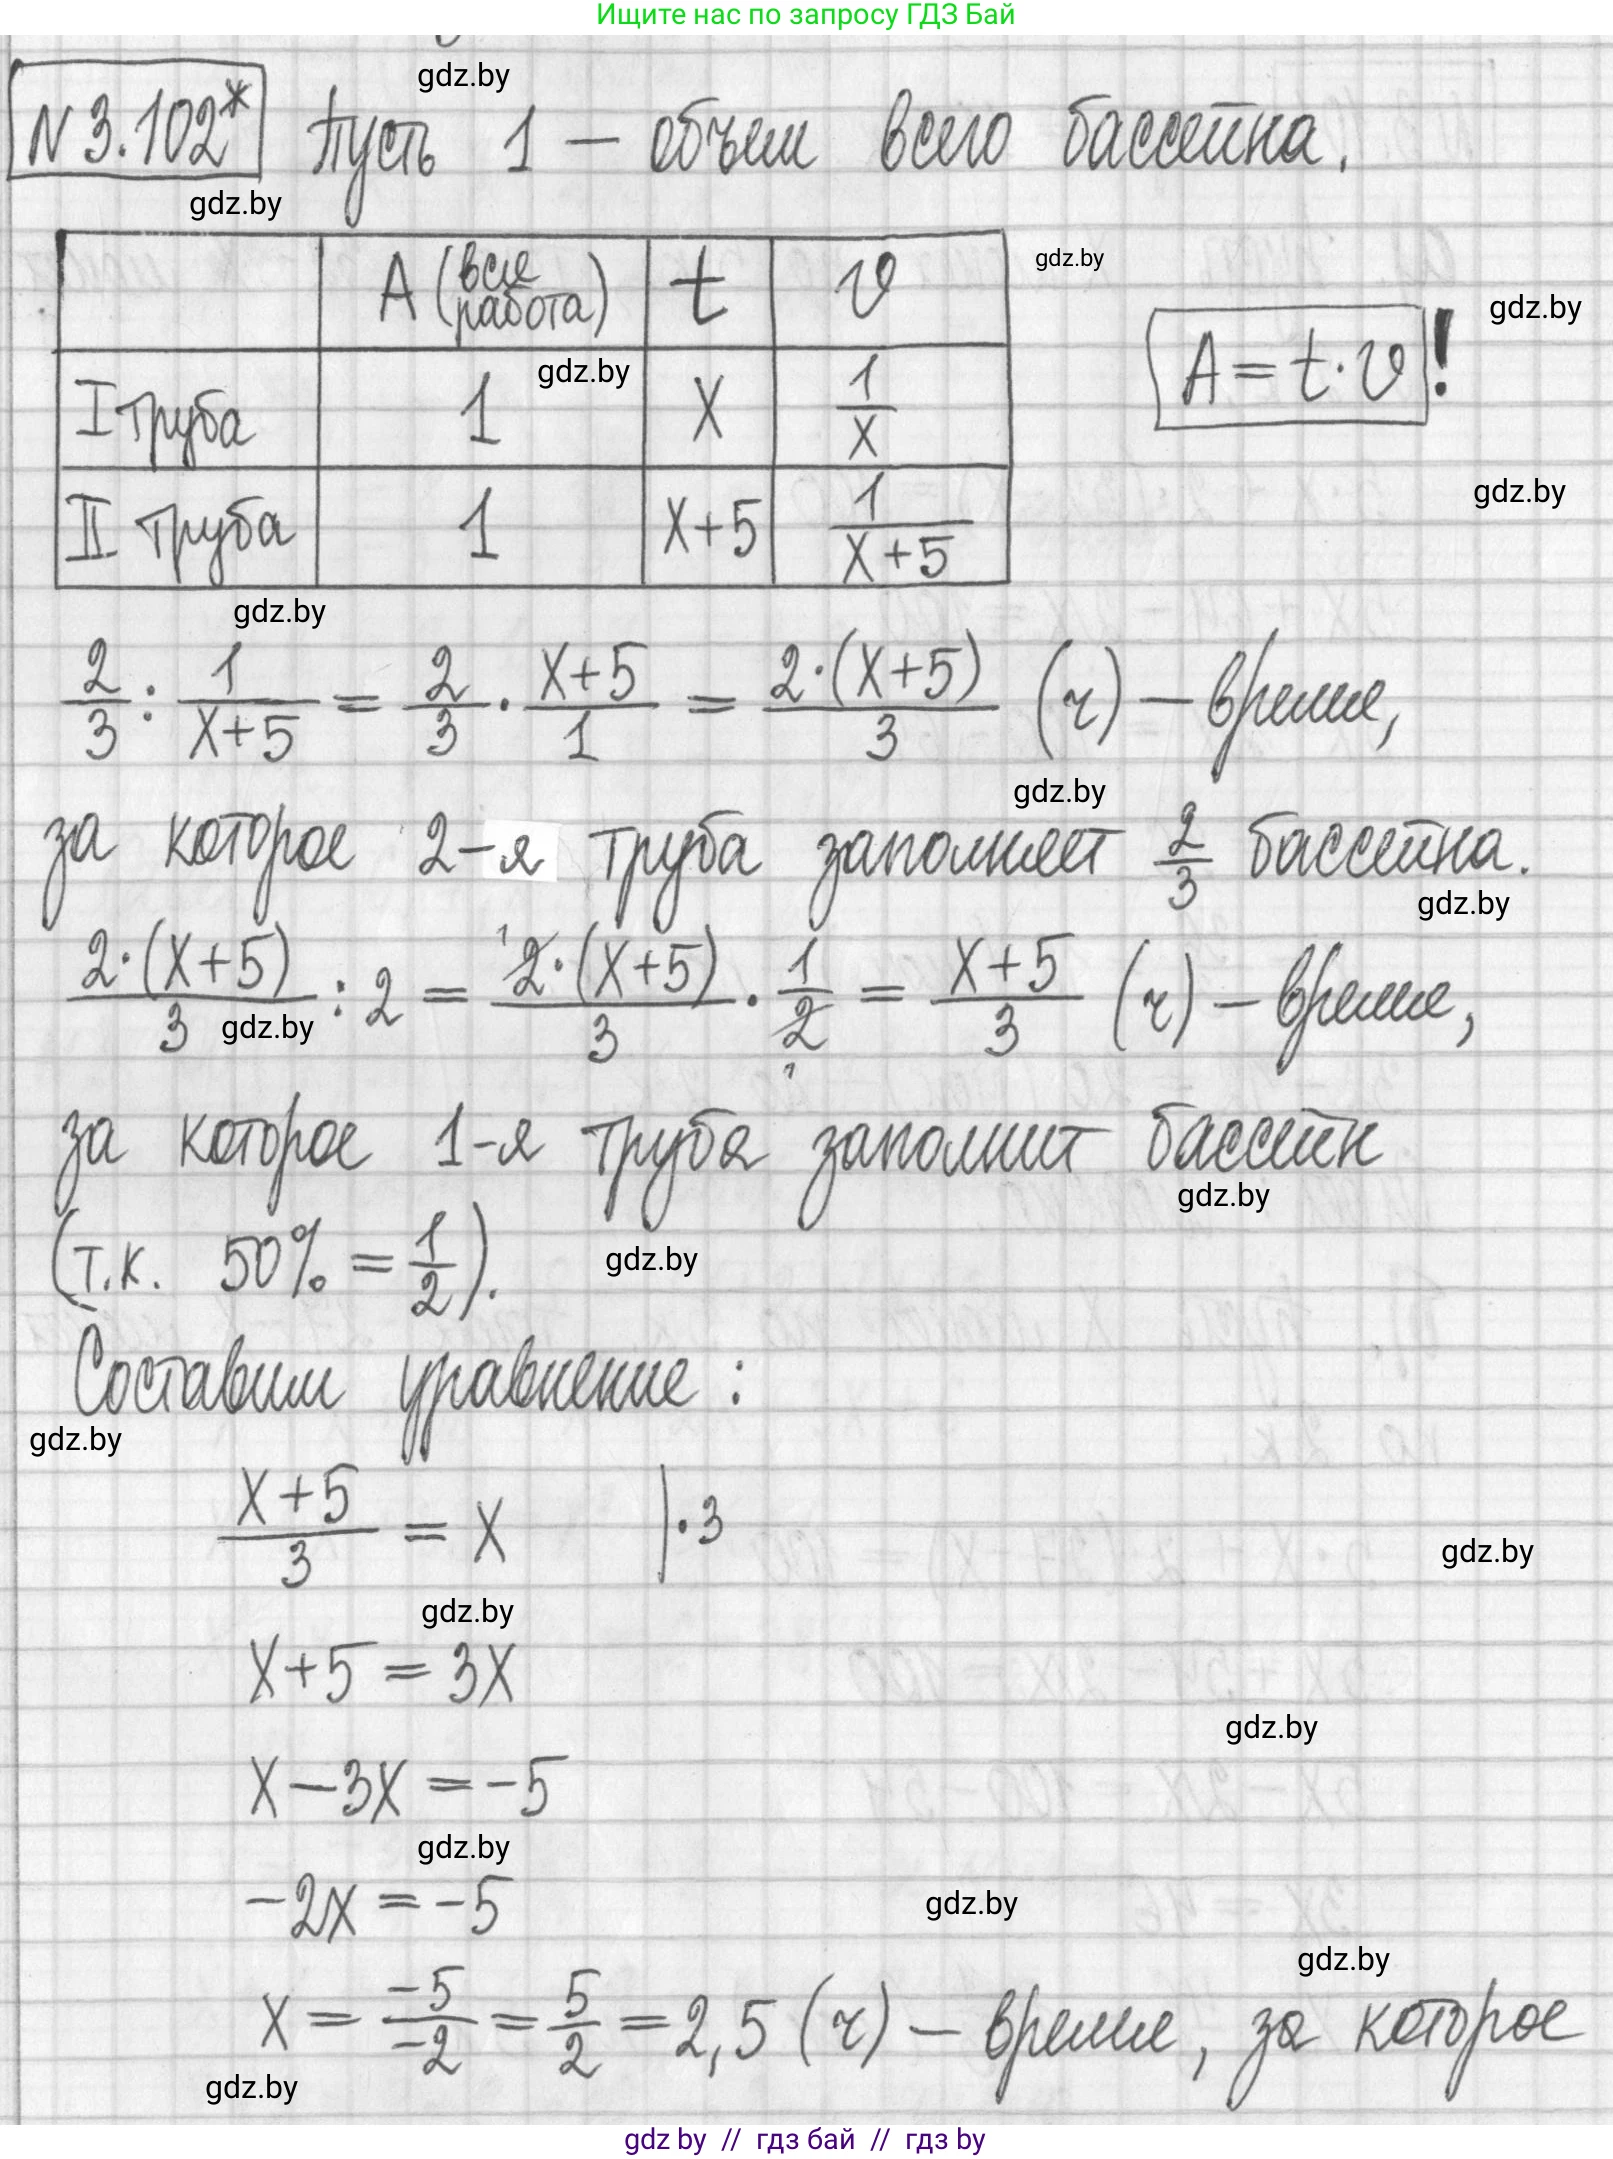 Ищите нас по запросу ГДЗ Бай
gdz.by
N 3.102* Пусть 1 – объем всего бассейна.
gdz.by
A (вся работа) t v
gdz.by
gdz.by
I труба 1 x 1/x
gdz.by
A = t · v !
gdz.by
II труба 1 x+5 1/(x+5)
gdz.by
2/3 : 1/(x+5) = 2/3 · (x+5)/1 = 2·(x+5)/3 (ч) – время,
gdz.by
за которое 2-я труба заполняет 2/3 бассейна.
gdz.by
2·(x+5)/3 : 2 = 2·(x+5)/3 · 1/2 = (x+5)/3 (ч) – время,
gdz.by
за которое 1-я труба заполнит бассейн
gdz.by
(т.к. 50% = 1/2).
gdz.by
Составим уравнение:
gdz.by
(x+5)/3 = x | · 3
gdz.by
gdz.by
x+5 = 3x
gdz.by
x – 3x = –5
gdz.by
–2x = –5
gdz.by
gdz.by
x = –5/–2 = 5/2 = 2,5 (ч) – время, за которое
gdz.by
gdz by // гдз бай // гдз by